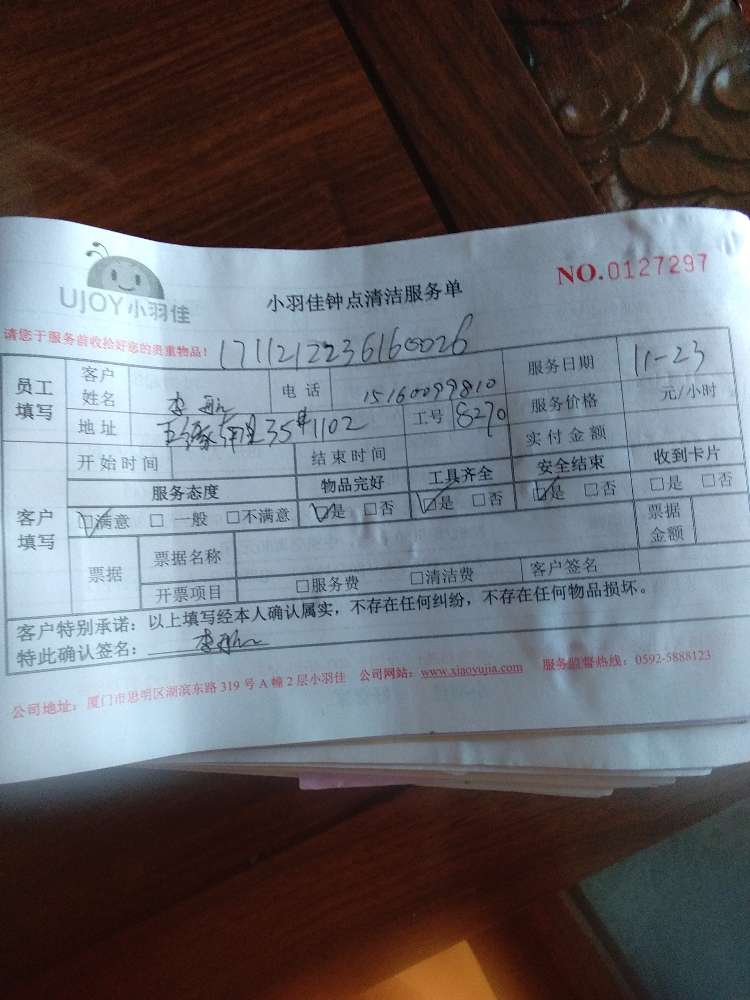 UJOY小羽佳
小羽佳钟点清洁服务单
NO.0127297
请您于服务前收拾好您的贵重物品!
1711212236160026
员工填写 客户姓名 李 电话 15160099810 服务日期 11-23
地址 南里35#1102 工号 8270 服务价格 元/小时
实付金额
客户填写 开始时间 结束时间
服务态度 物品完好 工具齐全 安全结束 收到卡片
☑满意 □一般 □不满意 ☑是 □否 ☑是 □否 ☑是 □否 □是 □否
票据 票据名称 票据金额
开票项目 □服务费 □清洁费 客户签名
客户特别承诺：以上填写经本人确认属实，不存在任何纠纷，不存在任何物品损坏。
特此确认签名： 李
公司地址：厦门市思明区湖滨东路 319 号 A 幢 2 层小羽佳 公司网站：www.xiaoyujia.com 服务监督热线：0592-5888123